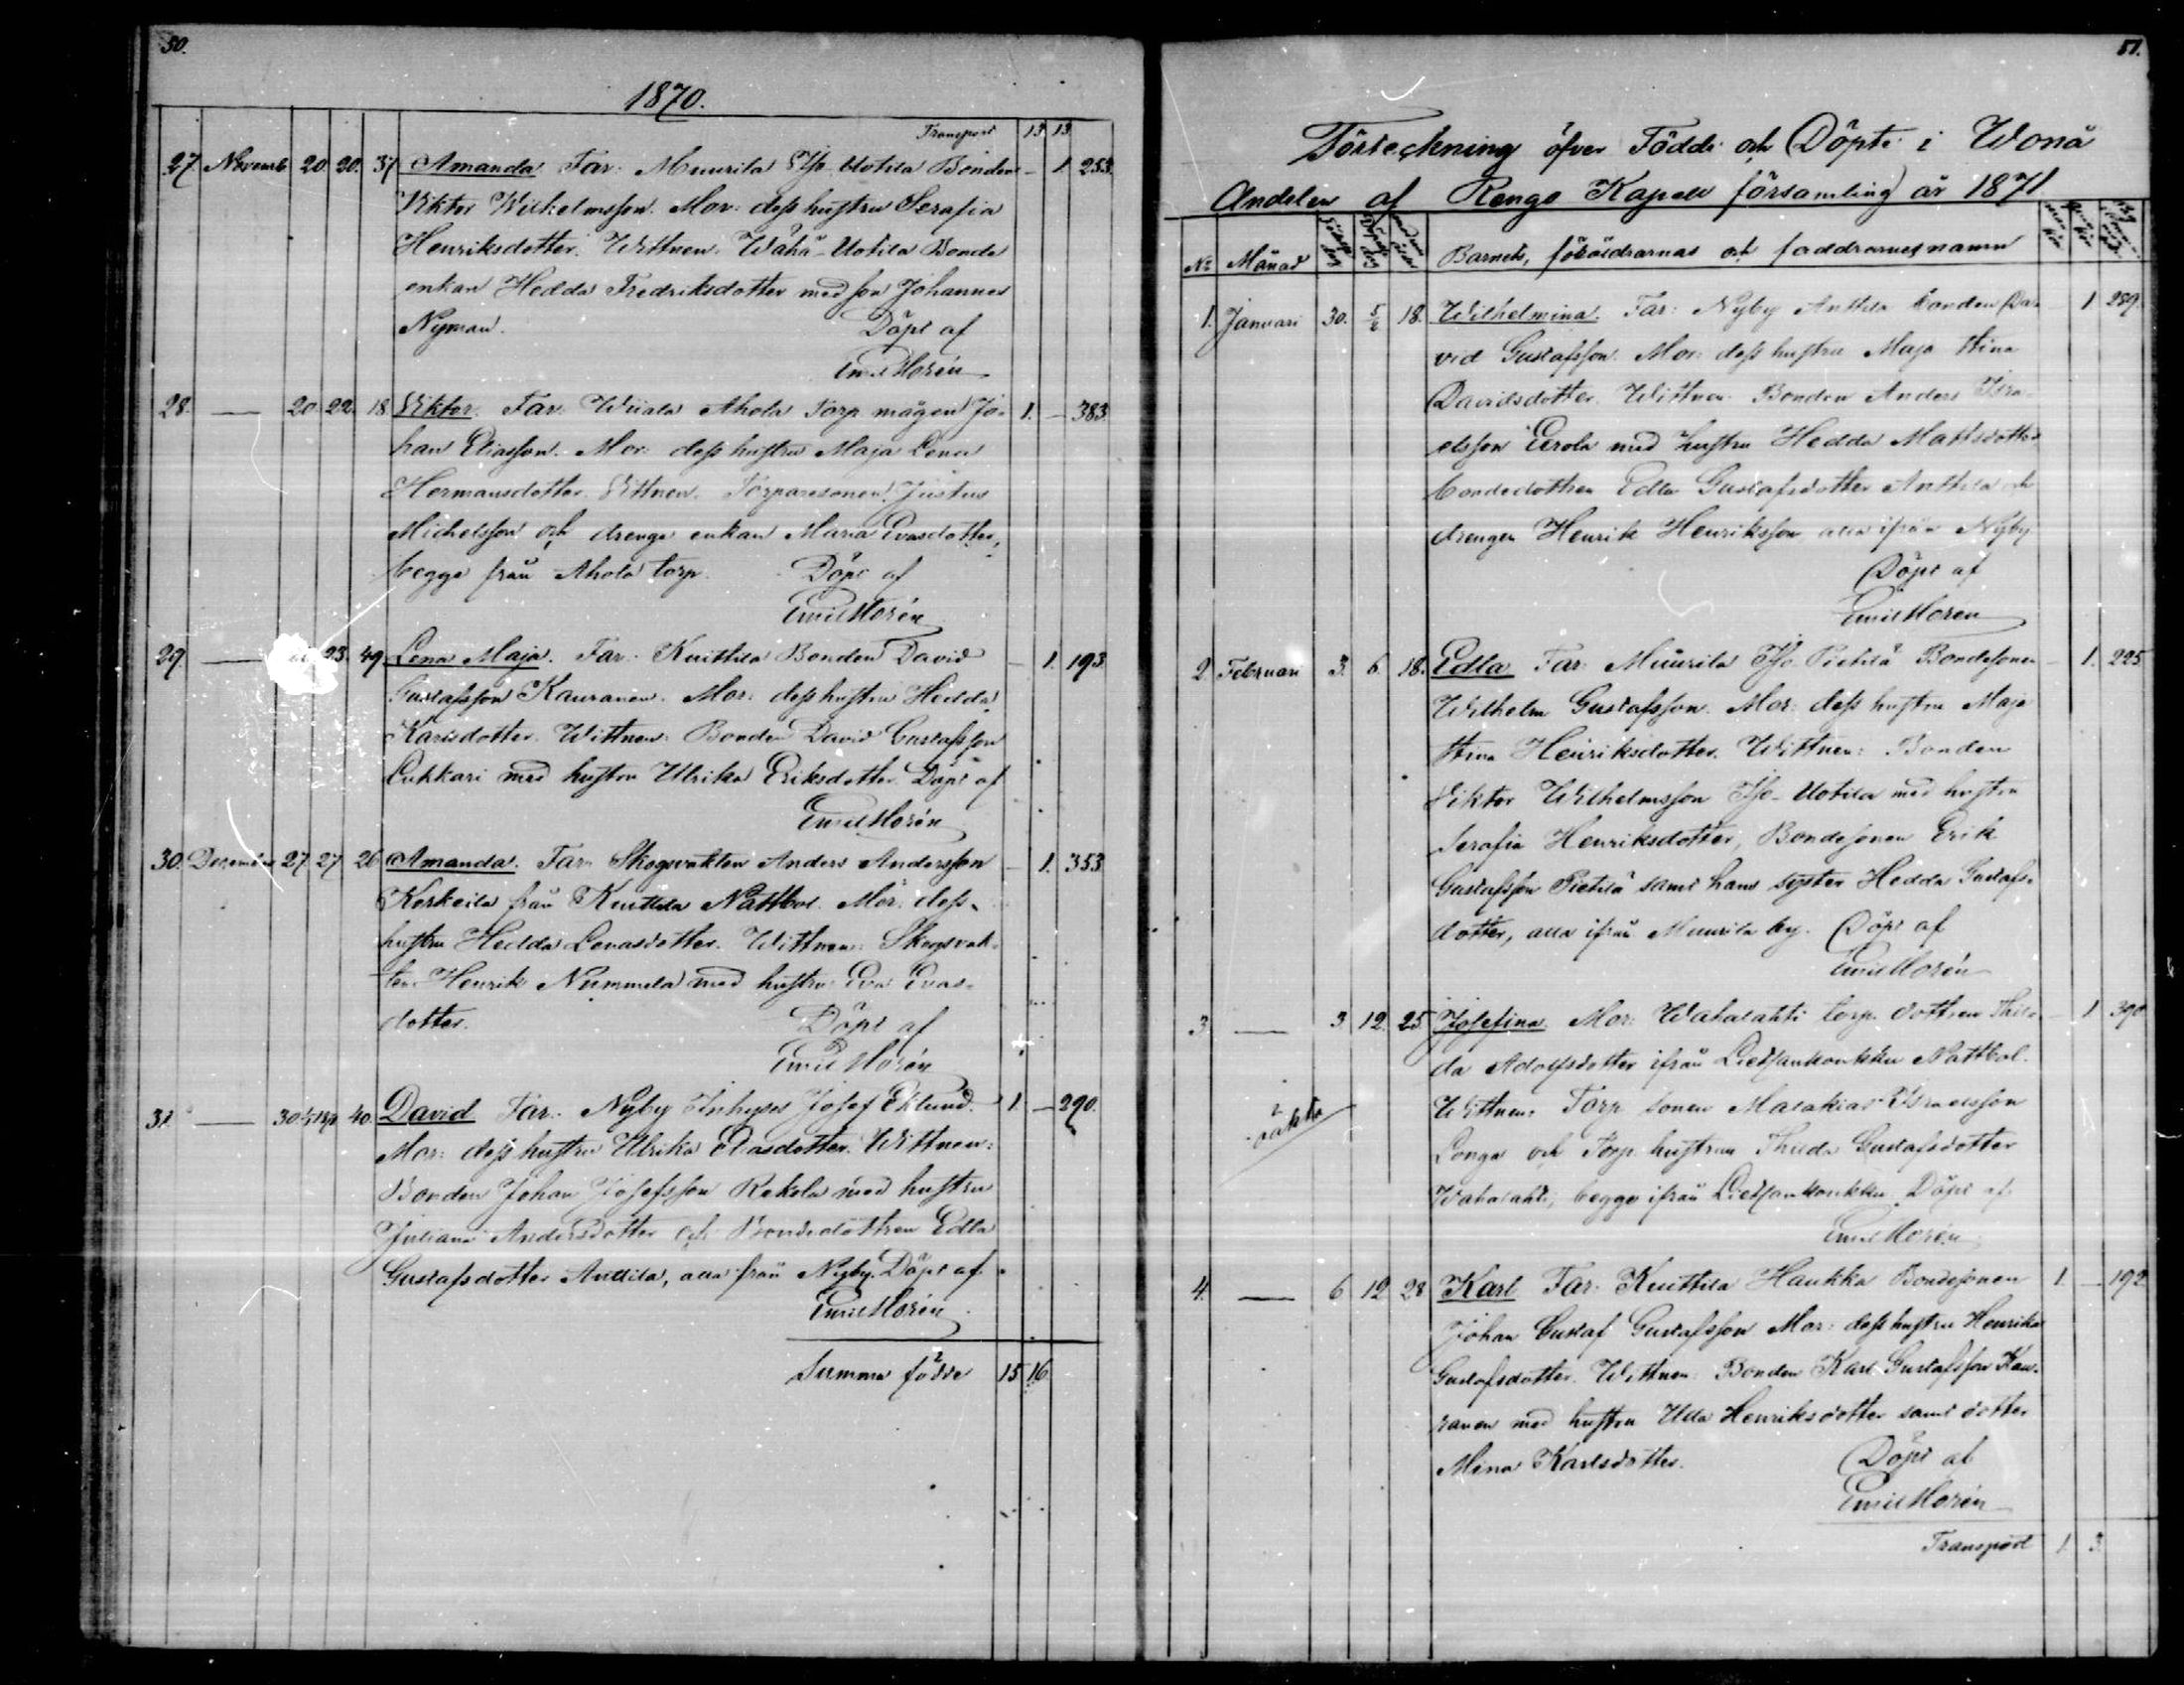 50.
1870.
Transport 13 13
27. Novemb 20. 20. 37 Amanda. Far: Muurila Iso-Uotila Bonden - 1 253.
Viktor Wilhelmsson. Mor: dess hustru Serafia
Henriksdotter. Wittnen. Wähä-Uotila Bonde
enkan Hedda Fredriksdotter med son Johannes
Nyman. Döpt af
Emil Morén
28. — 20. 22. 18 Viktor. Far: Wiiala Ahola Torp. mågen Jo- 1. - 383.
han Eliasson. Mor: dess hustru Maja Lena
Hermansdotter. Vittnen. Torparesonen Justus
Michelsson och drenge enkan Maria Evasdotter,
begge från Ahola torp. Döpt af
Emil Morén
29. — 23. 49. Lena Maja. Far: Knittila Bonden David - 1. 193.
Gustafsson Kauranen. Mor: dess hustru Hedda
Karlsdotter. Wittnen: Bonden David Gustafsson
Lukkari med hustru Ulrika Eriksdotter. Döpt af
Emil Morén
30. December 27 27 26 Amanda. Far: Skogsvakten Anders Andersson - 1. 353
Kerkeila från Knittila Nattbol. Mor: dess
hustru Hedda Lenasdotter. Wittnen: Skogsvak-
ten Henrik Nummela med hustru Eva Evas-
dotter. Döpt af
Emil Morén
31. — 30. 40. David Far: Nyby Inhyses Josef Eklund. 1. - 290.
Mor: dess hustru Ulrika Evasdotter. Wittnen:
Bonden Johan Josefsson Rekola med hustru
Juliana Andersdotter och Bondedottren Edla
Gustafsdotter Anttila, alla från Nyby. Döpt af
Emil Morén
Summa födde 15 16
51.
Förteckning öfver Födde och Döpte i Wonå
Andelen af Rengo Kapell församling år 1871
No Månad Födelse dag Döpelse dag Barnets, föräldrarnas och faddrarnes namn
1. Januari 30. 5/2 18. Wilhelmina. Far: Nyby Anttila bonden Da- 1 289.
vid Gustafsson. Mor: dess hustru Maja Stina
Davidsdotter. Wittnen. Bonden Anders Isra-
elsson Eerola med hustru Hedda Mattsdotter
bondedottren Edla Gustafsdotter Anttila och
drengen Henrik Henriksson alla ifrån Nyby
Döpt af
Emil Morén
2. Februari 3. 6. 18. Edla Far: Muurila Iso-Pietilä Bondesonen - 1. 225
Wilhelm Gustafsson. Mor: dess hustru Maja
Stina Henriksdotter. Wittnen: Bonden
Viktor Wilhelmsson Iso-Uotila med hustru
Serafia Henriksdotter, Bondesonen Erik
Gustafsson Pietilä samt hans syster Hedda Gustafs-
dotter, alla ifrån Muurila by. Döpt af
Emil Morén
3 — 3. 12. 25. Josefina. Mor: Wahalahti torp. dottren Thil- - 1 390
da Adolfsdotter ifrån Lietsankonkku Nattbol.
oäkta
Wittnen: Torp. sonen Malakias Israelsson
Longa och Torp. hustrun Thilda Gustafsdotter
Wahalahti, begge ifrån Lietsankonkku. Döpt af
Emil Morén
4. — 6 12 28 Karl Far: Knittila Haukka Bondesonen 1. - 192
Johan Gustaf Gustafsson Mor: dess hustru Henrika
Gustafsdotter. Wittnen: Bonden Karl Gustafsson Kau-
ranen med hustru Ulla Henriksdotter samt dotter
Mina Karlsdotter. Döpt af
Emil Morén
Transport 1 3.